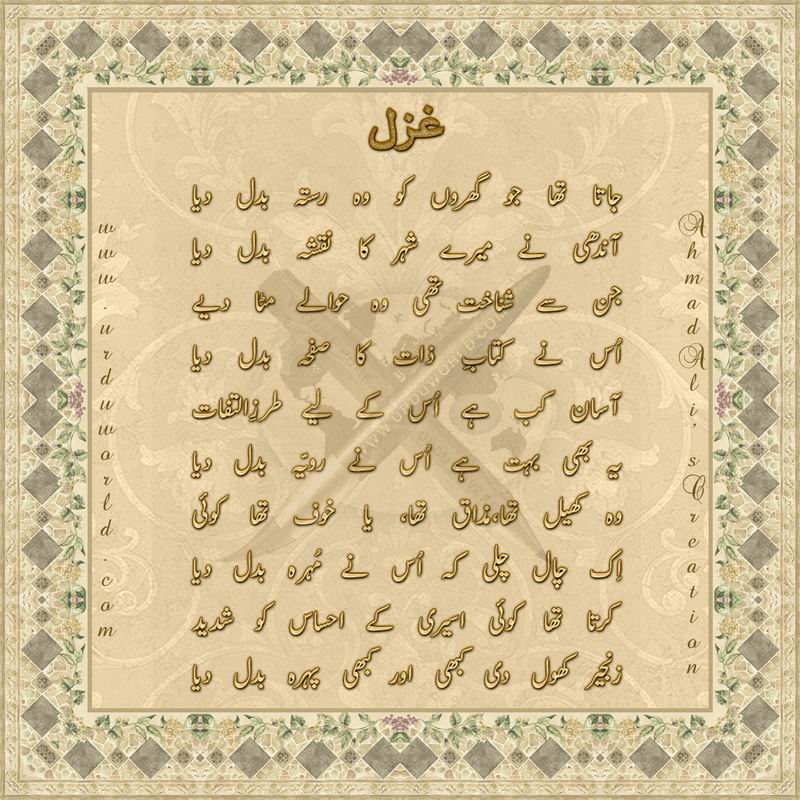 غزل
جاتا تھا جو گھروں کو وہ رستہ بدل دیا
آندھی نے میرے شہر کا نقشہ بدل دیا
جن سے شناخت تھی وہ حوالے مٹا دیے
اُس نے کتابِ ذات کا صفحہ بدل دیا
آسان کب ہے اُس کے لیے طرزِالتفات
یہ بھی بہت ہے اُس نے رویّہ بدل دیا
وہ کھیل تھا،مذاق تھا، یا خوف تھا کوئی
اِک چال چلی کہ اُس نے مُہرہ بدل دیا
کرتا تھا کوئی اسیری کے احساس کو شدید
زنجیر کھول دی کبھی اور کبھی پہرہ بدل دیا
www.urduworld.com
Ahmad Ali's Creation
WWW.URDUWORLD.COM